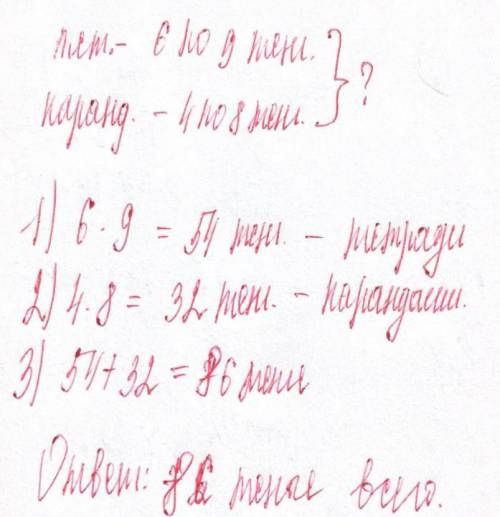 тет. - 6 по 9 тенг. } ?
каранд. - 4 по 8 тенг.
1) 6 · 9 = 54 тенг. - тетради
2) 4 · 8 = 32 тенг. - карандаши.
3) 54 + 32 = 86 тенге
Ответ: 86 тенге всего.